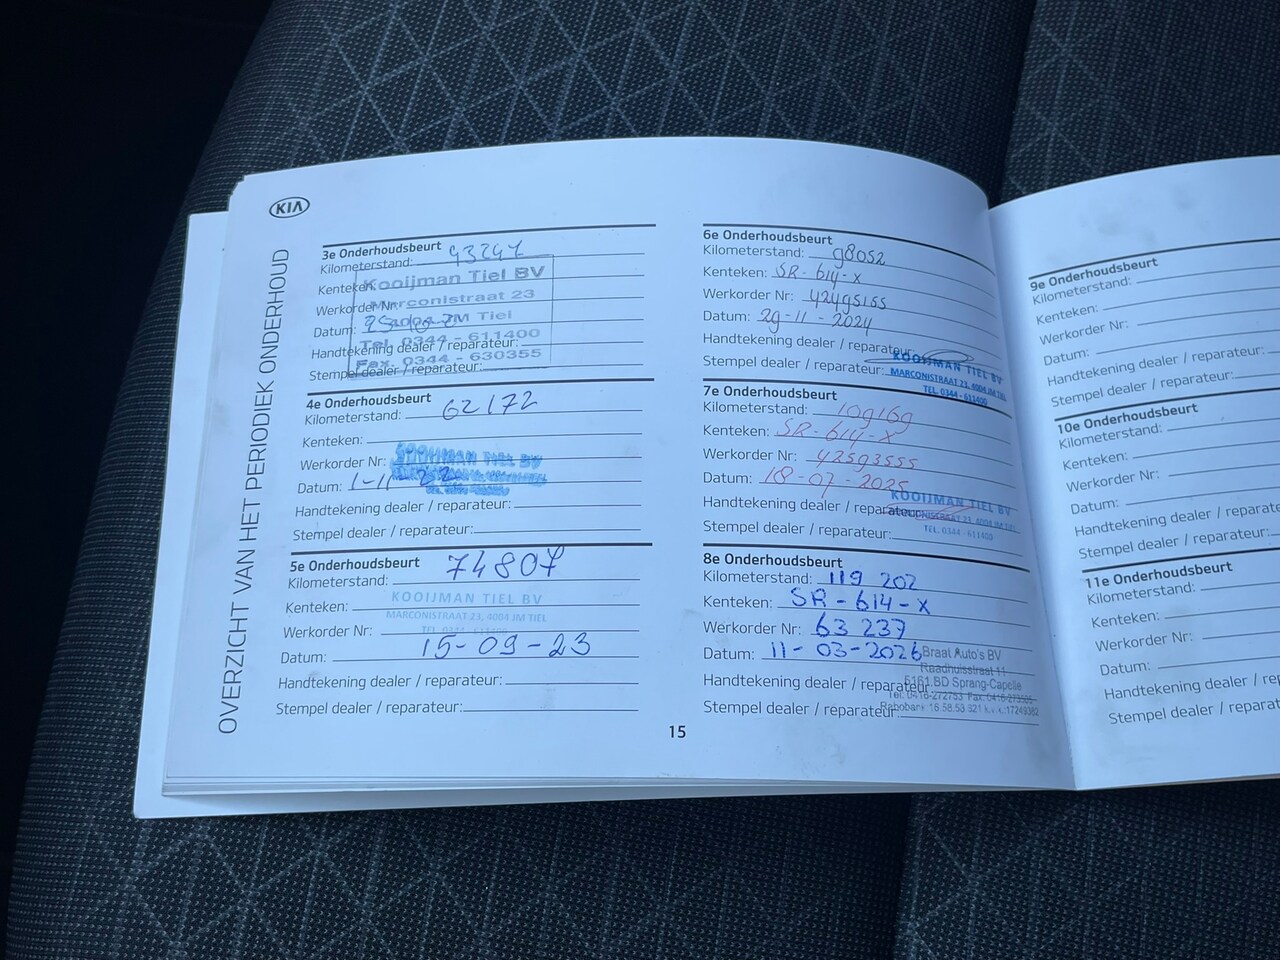 KIA
OVERZICHT VAN HET PERIODIEK ONDERHOUD
3e Onderhoudsbeurt
Kilometerstand: 43247
Kenteken:
Werkorder Nr:
Datum:
Handtekening dealer / reparateur:
Stempel dealer / reparateur:
Kooijman Tiel BV
Marconistraat 23
Tiel
Tel. 0344 - 611400
Fax. 0344 - 630355
4e Onderhoudsbeurt
Kilometerstand: 62172
Kenteken:
Werkorder Nr:
KOOIJMAN TIEL BV
Datum: 1-11-22
Handtekening dealer / reparateur:
Stempel dealer / reparateur:
5e Onderhoudsbeurt
Kilometerstand: 74807
Kenteken:
KOOIJMAN TIEL BV
MARCONISTRAAT 23, 4004 JM TIEL
TEL. 0344 - 611400
Werkorder Nr:
Datum: 15-09-23
Handtekening dealer / reparateur:
Stempel dealer / reparateur:
6e Onderhoudsbeurt
Kilometerstand: 98052
Kenteken: SR-614-X
Werkorder Nr: 42495165
Datum: 29-11-2024
Handtekening dealer / reparateur:
Stempel dealer / reparateur:
KOOIJMAN TIEL BV
MARCONISTRAAT 23, 4004 JM TIEL
TEL. 0344 - 611400
7e Onderhoudsbeurt
Kilometerstand: 109169
Kenteken: SR-614-X
Werkorder Nr: 42593555
Datum: 18-07-2025
Handtekening dealer / reparateur:
Stempel dealer / reparateur:
KOOIJMAN TIEL BV
MARCONISTRAAT 23, 4004 JM TIEL
TEL. 0344 - 611400
8e Onderhoudsbeurt
Kilometerstand: 119 202
Kenteken: SR-614-X
Werkorder Nr: 63 237
Datum: 11-03-2026
Handtekening dealer / reparateur:
Stempel dealer / reparateur:
Braat Auto's BV
Raadhuisstraat 11
5161 BD Sprang-Capelle
Tel: 0416-272753 Fax:
15
9e Onderhoudsbeurt
Kilometerstand:
Kenteken:
Werkorder Nr:
Datum:
Handtekening dealer / reparateur:
Stempel dealer / reparateur:
10e Onderhoudsbeurt
Kilometerstand:
Kenteken:
Werkorder Nr:
Datum:
Handtekening dealer / reparateur:
Stempel dealer / reparateur:
11e Onderhoudsbeurt
Kilometerstand:
Kenteken:
Werkorder Nr:
Datum:
Handtekening dealer / rep
Stempel dealer / reparateur